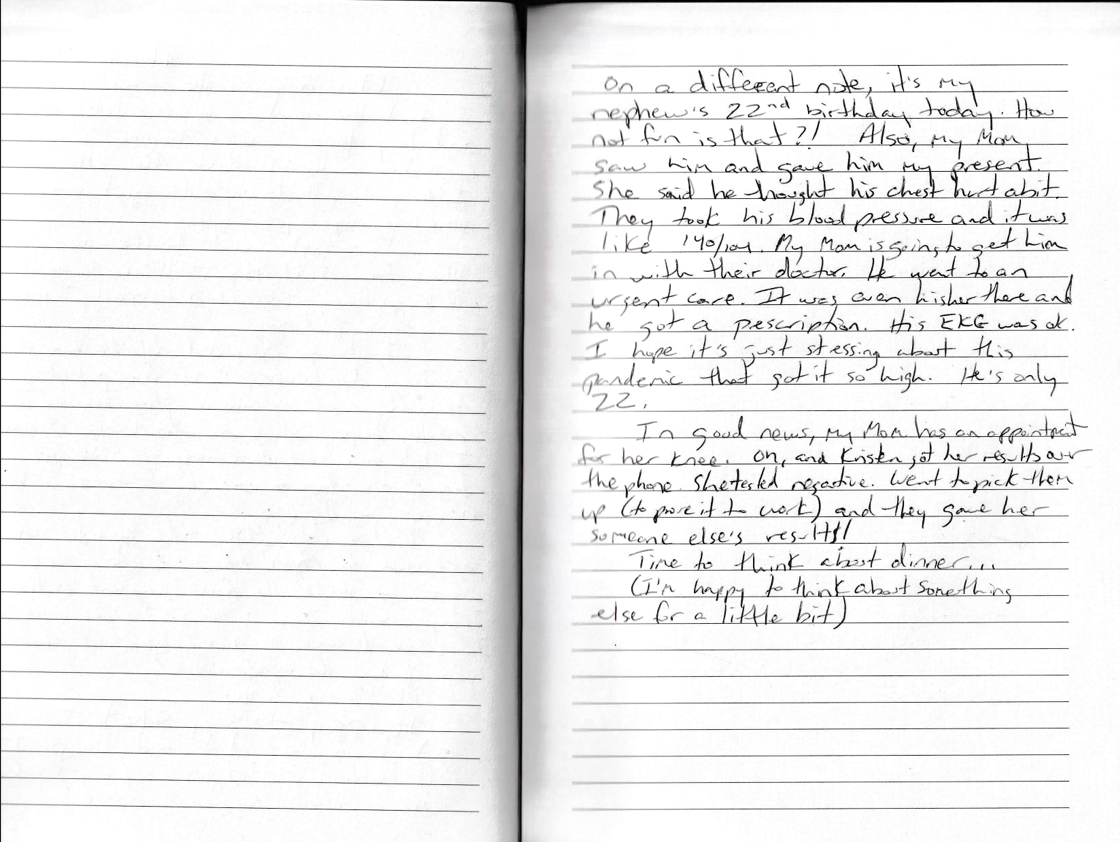 On a different note, it's my
nephew's 22nd birthday today. How
not fun is that?! Also, my Mom
saw him and gave him my present.
She said he thought his chest hurt abit.
They took his blood pressure and it was
like 140/104. My Mom is going to get him
in with their doctor. He went to an
urgent care. It was even higher there and
he got a prescription. His EKG was ok.
I hope it's just stressing about this
pandemic that got it so high. He's only
22.
In good news, my Mom has an appointment
for her knee. Oh, and Kristen got her results over
the phone. She tested negative. Went to pick them
up (to prove it to work) and they gave her
someone else's results!!
Time to think about dinner...
(I'm happy to think about something
else for a little bit)